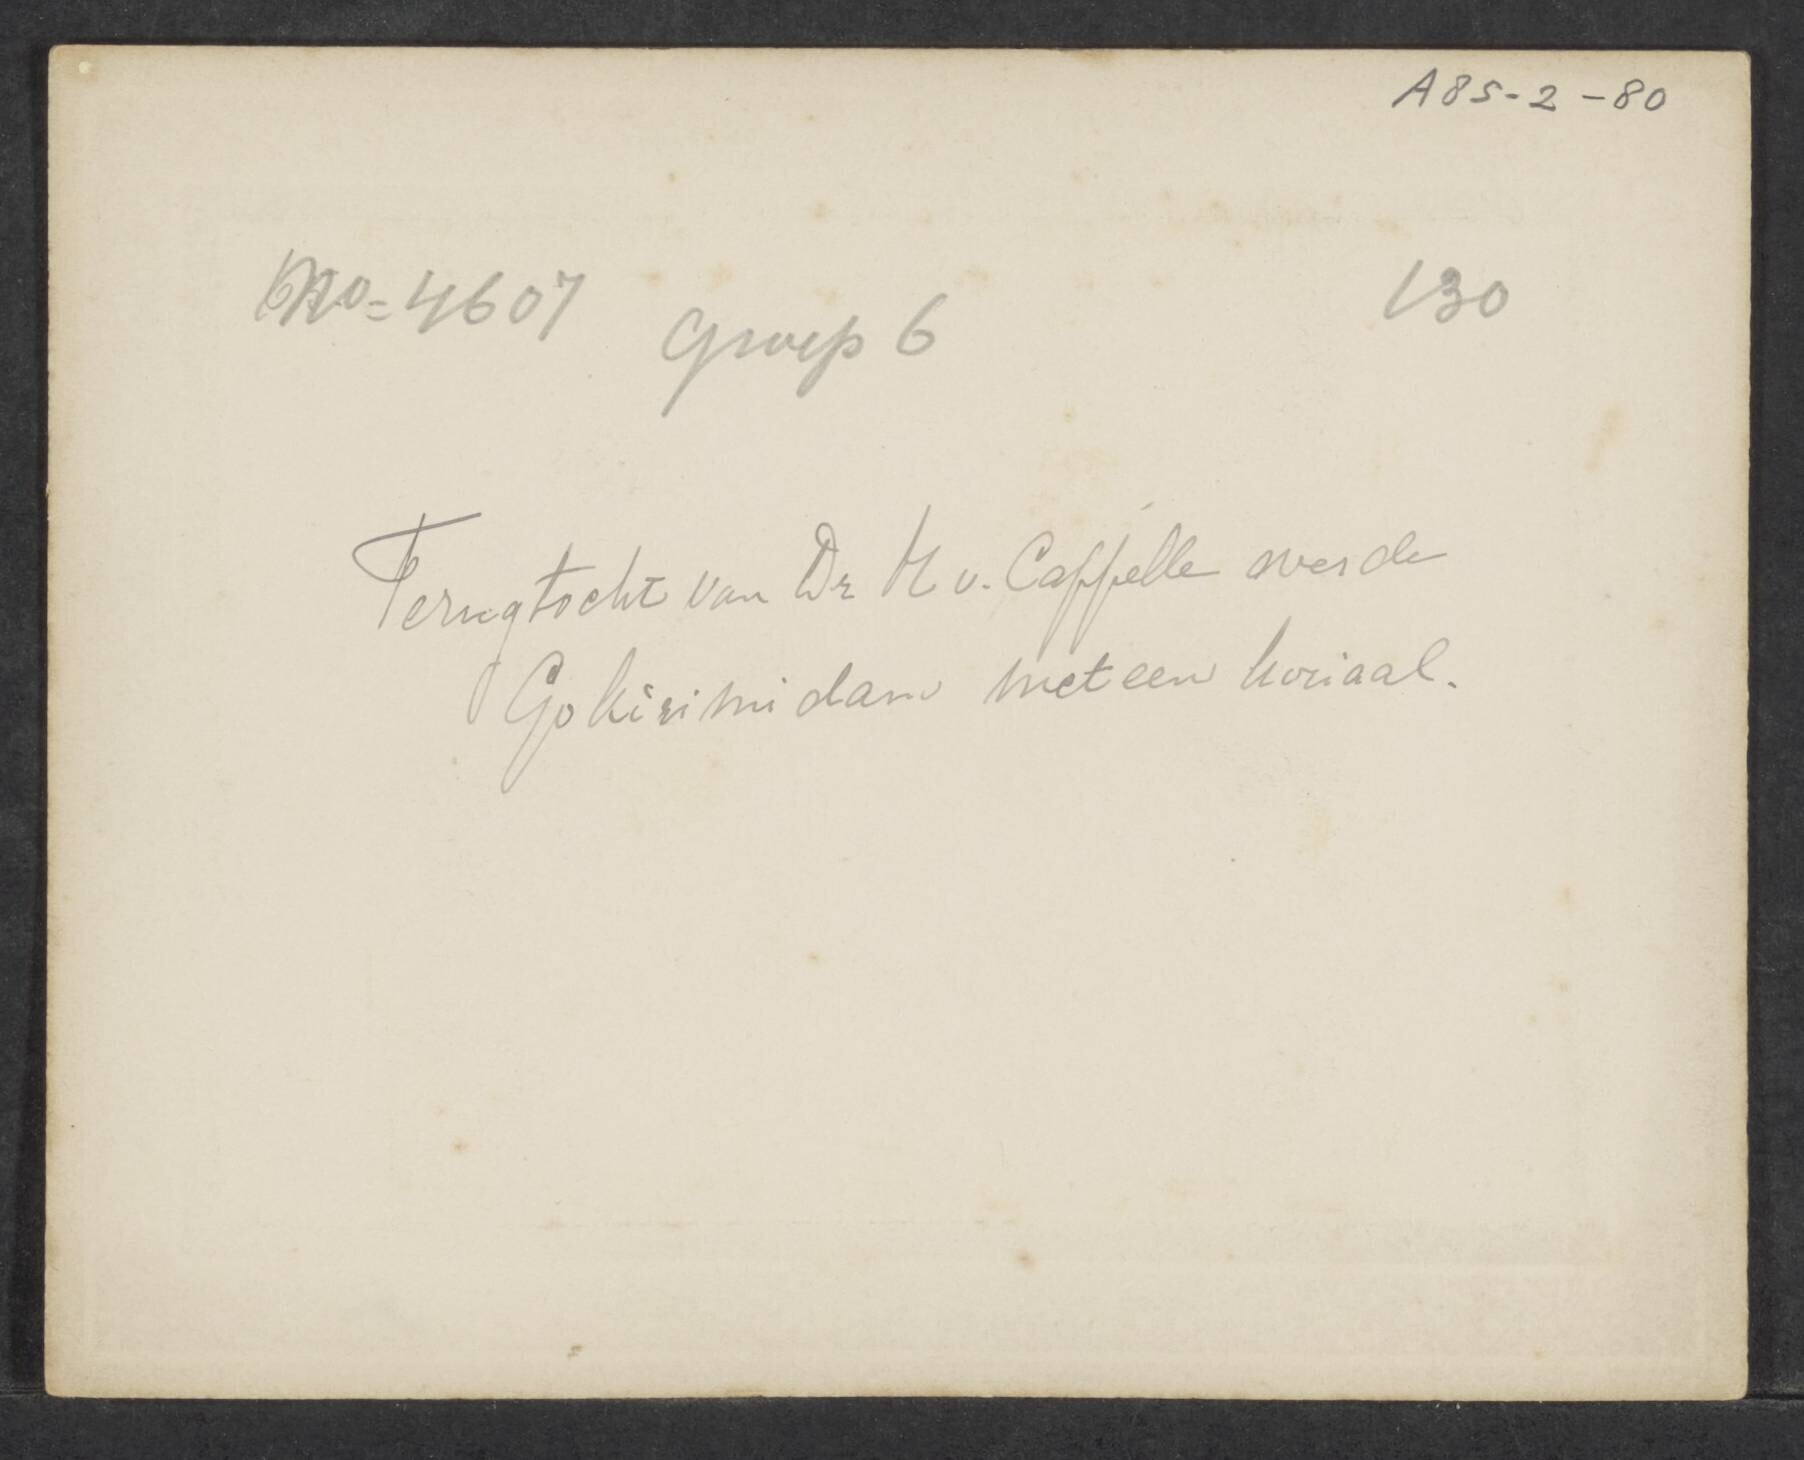 A85-2-80
No= 4607
130
Groep 6
Terugtocht van Dr H v. Cappelle over de
Gokirimidam met een koriaal.